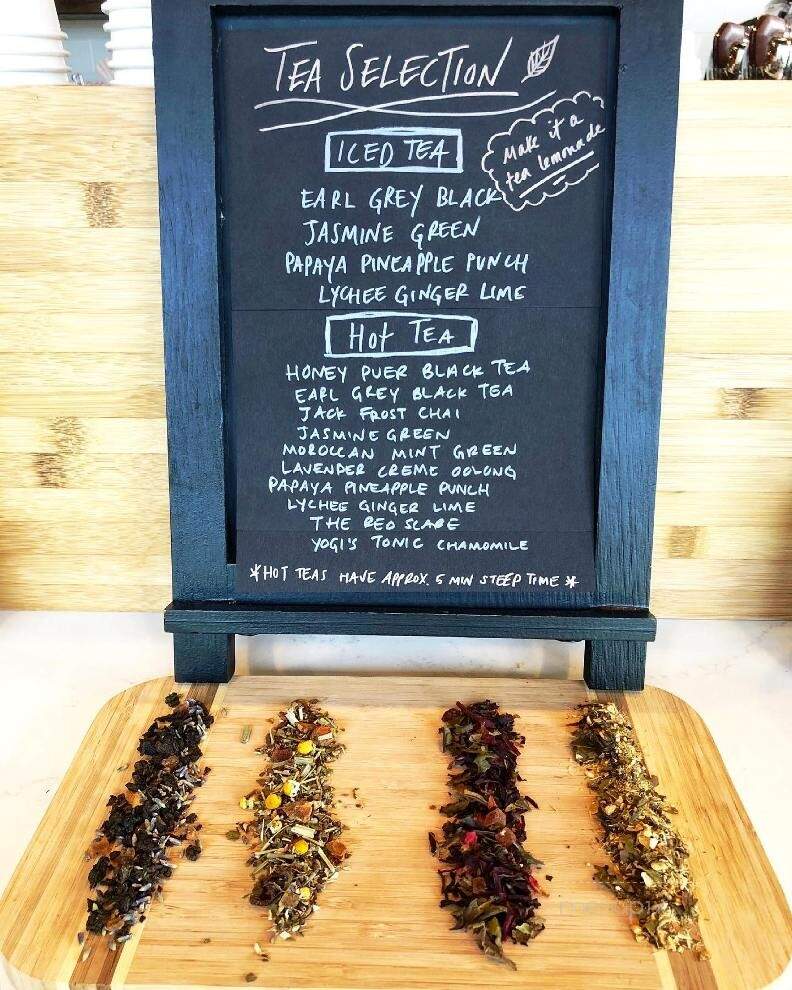 TEA SELECTION
Make it a
tea lemonade
ICED TEA
EARL GREY BLACK
JASMINE GREEN
PAPAYA PINEAPPLE PUNCH
LYCHEE GINGER LIME
Hot TEA
HONEY PUER BLACK TEA
EARL GREY BLACK TEA
JACK FROST CHAI
JASMINE GREEN
MOROCCAN MINT GREEN
LAVENDER CREME OOLONG
PAPAYA PINEAPPLE PUNCH
LYCHEE GINGER LIME
THE RED SCARE
YOGI'S TONIC CHAMOMILE
*HOT TEAS HAVE APPROX. 5 MIN STEEP TIME*